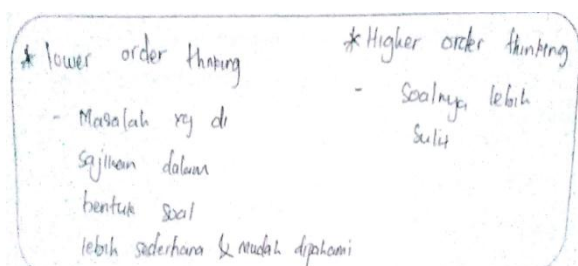 * lower order thinking
- Masalah yg di
sajikan dalam
bentuk soal
lebih sederhana & mudah dipahami
* Higher order thinking
- Soalnya lebih
sulit